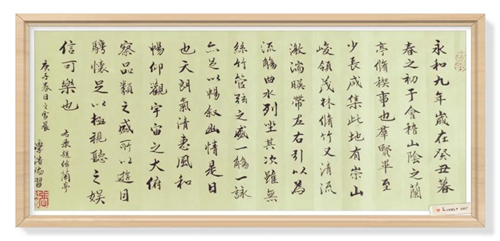 永和九年歲在癸丑暮
春之初于會稽山陰之蘭
亭脩稧事也群賢畢至
少長咸集此地有崇山
峻領茂林脩竹又清流
激湍暎帶左右引以為
流觴曲水列坐其次雖無
絲竹管弦之盛一觴一詠
亦足以暢叙幽情是日
也天朗氣清惠風和
暢仰觀宇宙之大俯
察品類之盛所以遊目
騁懷足以極視聽之娛
信可樂也
庚子春日
蘭亭